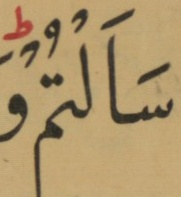 سَاَلْتُمْ ؕ وَ